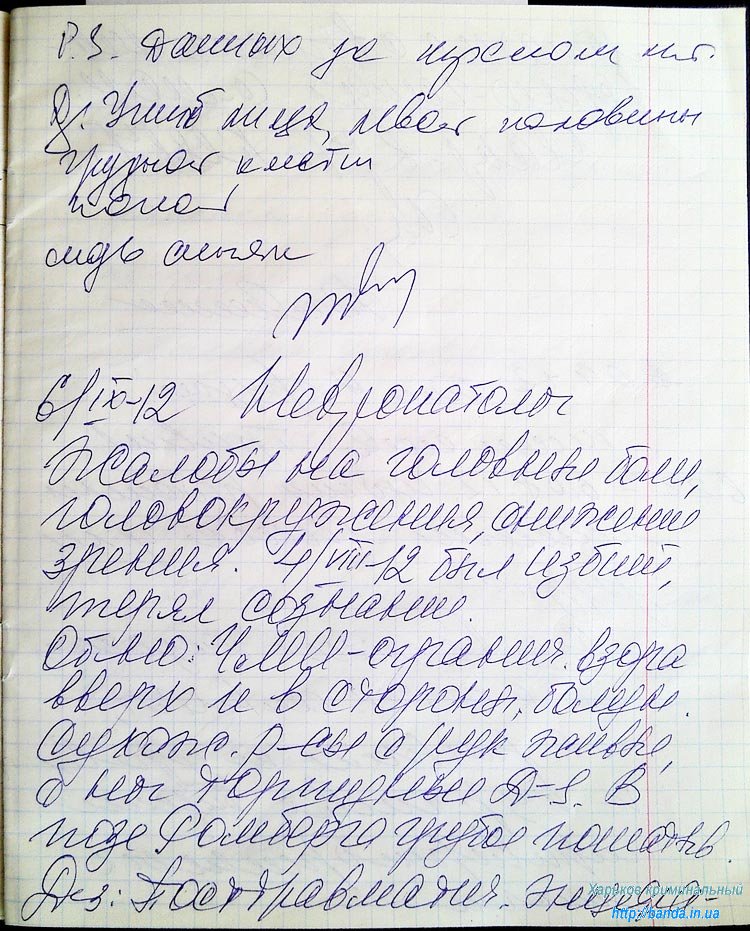 P.S. Данных за перелом нет.
Дз. Ушиб лица, левой половины
грудной клетки
6/IX-12 Невропатолог
Жалобы на головные боли,
головокружения, снижение
зрения. 4/VIII-12 был избит,
терял сознание.
Об-но: ЧМН - огранич. взора
вверх и в стороны, болезн.
сухож. р-сы с рук живые,
с ног торпидные D=S. В
позе Ромберга грубое пошатыв.
Дз: Посттравматич. энцефало-
Харьков криминальный
http://banda.in.ua